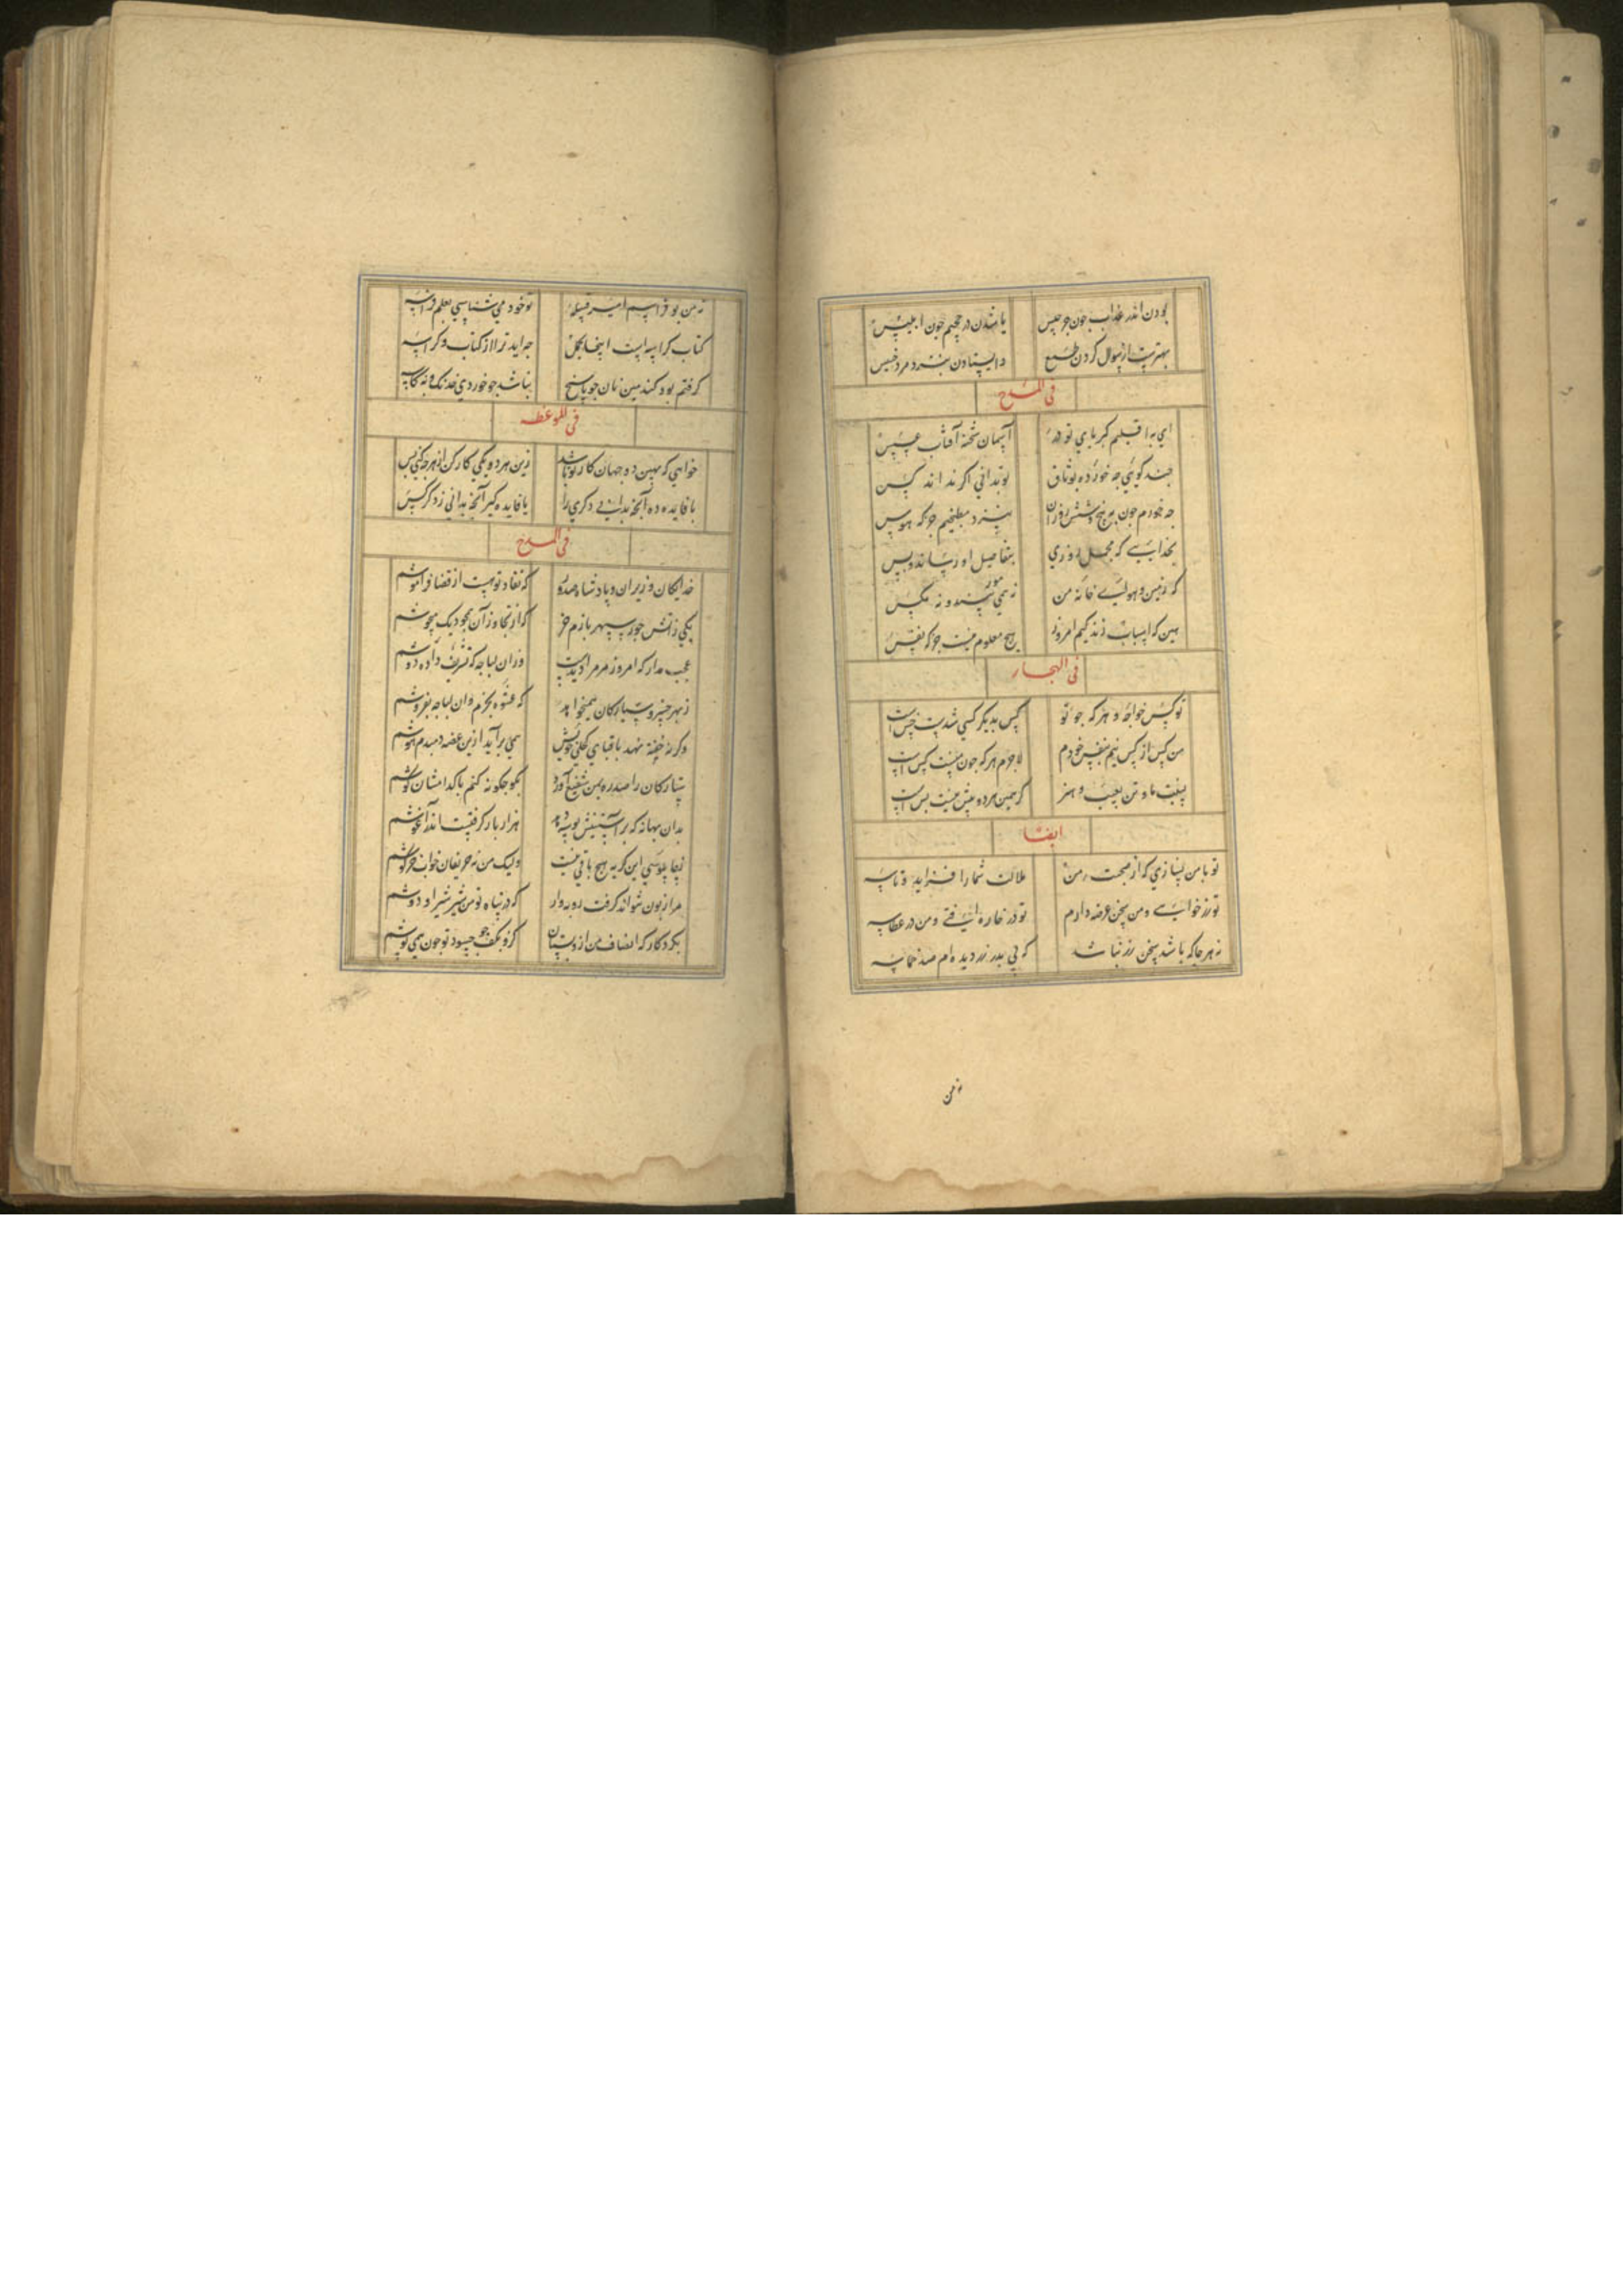 بودن اندر عذاب چون جرجیس یا شدن در جحیم چون ابلیس
بهترست از سوال کردن طمع و ایستادن بنزد مرد خسیس
فی المدح
ای باقلیم کبریای تو در آسمان شحنه آفتاب عسس
چند گویی چه خورده بوثاق تو ندانی اگر نداند کس
چه خورم چون به پنج و شش روزان نپزد مطبخیم جز که هوس
بخدایی که مجمل روزی بتفاصیل او رساند و بس
که زمین و هوای خانه من نه همی مور بیند و نه مگس
بین که اسباب زندگیم امروز هیچ معلوم نیست جز که نفس
فی الهجا
تو کس خواجهٔ و هر که چو تو کس بدیگر کسی شدست خس است
من کس از کس نیم بنفس خودم لاجرم هر که چون منست کس است
نیست ما و تن بعیب و هنر گر همین هر دو بیش نیست بس است
ایضا
تو با من نسازی که از صحبت من ملالت شما را فزاید و تاسه
تو زر خواهی و من سخن عرضه دارم تو در فازه افتی و من در عطاسه
نه هر جا که باشد سخن زر نباشد
ز من
ز من بو فراسم امیر قبیله تو خود می شناسی بعلم فراسه
کتاب کراسه است اینجا
گرفتم بود گندمین نان جو پاسخ نباشد چو خوردی
فی الموعظه
خواهی که بهین ده جهان کار تو باشد زین هر دو یکی کار کن از هر چه کنی بس
یا فایده ده آنچ بدانی دگری را یا فایده گیر آنچ ندانی ز دگر کس
فی المدح
خدایگان وزیران و پادشاه صدور که نفاد تو هست از قضا فراموشم
یکی ز آتش جور سپهر بازم خر که از تجاوز آن همچو دیک میجوشم
عجب مدار که امروز مر مرا دیدست در آن لباجه که تشریف داده دوشم
ز بهر خسرو سیارکان همیخواهد که عشوه بخرم وان لباجه بفروشم
وگرنه فتنه نهد با قبای کحلی خویش همی برآید ازین غصه دمبدم هوشم
ستارکان را صدره بمن شفیع آورد بگو چگونه کنم با کدامشان کوشم
بدان بهانه که بر آستینش بوسه دهد هزار بار گرفتست اندر آغوشم
ز چاپلوسی این گربه هیچ باقی نیست ولیک من نه حریفان خواب خرگوشم
مرا زبون نتواند گرفت روبه وار که در پناه تو من شیر شیر او دوشم
بکردگار که انصاف من ازو بستان کزو بکف چو حسود تو چون همی نوشم